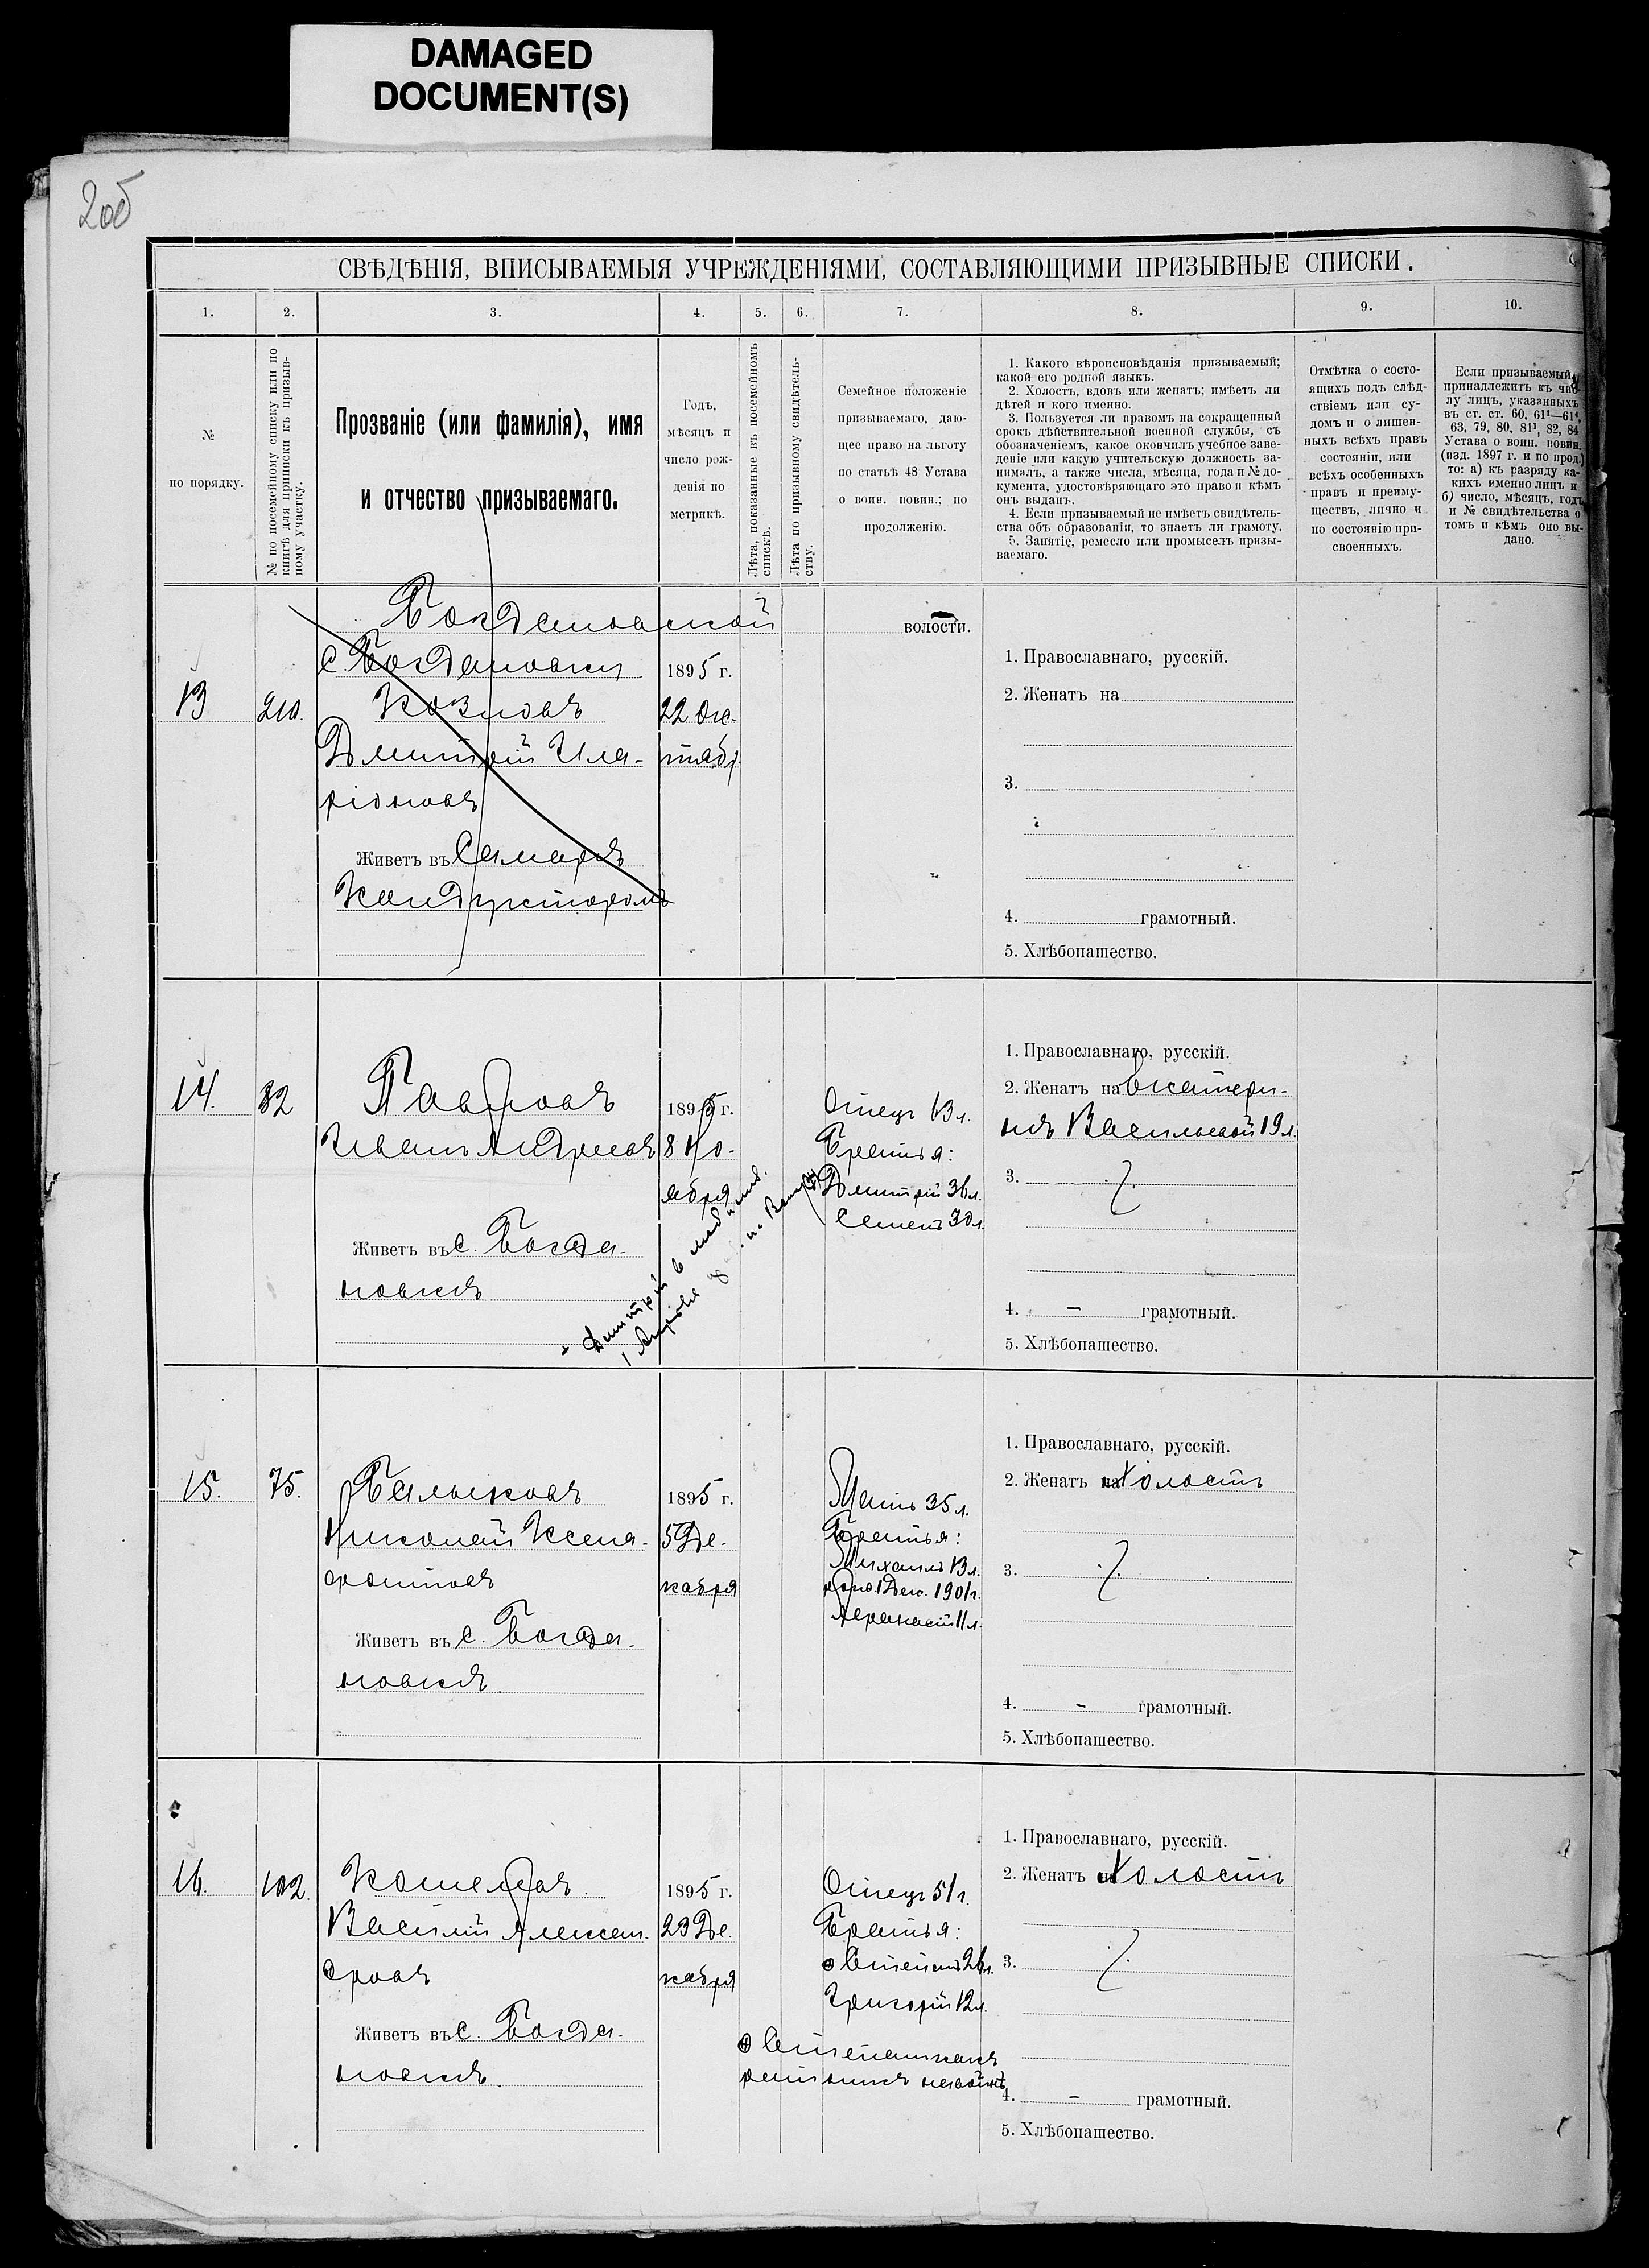 DAMAGED
DOCUMENT(S)
20б
СВѢДѢНІЯ, ВПИСЫВАЕМЫЯ УЧРЕЖДЕНІЯМИ, СОСТАВЛЯЮЩИМИ ПРИЗЫВНЫЕ СПИСКИ.
1. 2. 3. 4. 5. 6. 7. 8. 9. 10.
№
по порядку.
№ по посемейному списку или по
книгѣ для приписки къ призыв-
ному участку.
Прозваніе (или фамилія), имя
и отчество призываемаго.
Годъ,
мѣсяцъ и
число рож-
денія по
метрикѣ.
Лѣта, показанные въ посемейномъ
спискѣ.
Лѣта по призывному свидѣтель-
ству.
Семейное положеніе
призываемаго, даю-
щее право на льготу
по статьѣ 48 Устава
о воин. повин.; по
продолженію.
1. Какого вѣроисповѣданія призываемый;
какой его родной языкъ.
2. Холостъ, вдовъ или женатъ; имѣетъ ли
дѣтей и кого именно.
3. Пользуется ли правомъ на сокращенный
срокъ дѣйствительной военной службы, съ
обозначеніемъ, какое окончилъ учебное заве-
деніе или какую учительскую должность за-
нималъ, а также числа, мѣсяца, года и № до-
кумента, удостовѣряющаго это право и кѣмъ
онъ выданъ.
4. Если призываемый не имѣетъ свидѣтель-
ства объ образованіи, то знаетъ ли грамоту.
5. Занятіе, ремесло или промыселъ призы-
ваемаго.
Отмѣтка о состо-
ящихъ подъ слѣд-
ствіемъ или су-
домъ и о лишен-
ныхъ всѣхъ правъ
состоянія, или
всѣхъ особенныхъ
правъ и преиму-
ществъ, лично и
по состоянію при-
своенныхъ.
Если призываемый
принадлежитъ къ чис-
лу лицъ, указанныхъ
въ ст. ст. 60, 61¹—61⁴,
63, 79, 80, 81¹, 82, 84
Устава о воин. повин.
(изд. 1897 г. и по прод.)
то: а) къ разряду ка-
кихъ именно лицъ и
б) число, мѣсяцъ, годъ
и № свидѣтельства о
томъ и кѣмъ оно вы-
дано.
Богдановской волости.
13
210.
с Богдановки
Козловъ
Дмитрій Ила-
ріоновъ
Живетъ въ Самарѣ
Кондукторомъ
1895 г.
22 Ок-
тябр
1. Православнаго, русскій.
2. Женатъ на
3.
4. грамотный.
5. Хлѣбопашество.
14.
82
Павловъ
Иванъ Андреевъ
Живетъ въ с. Богда-
новкѣ
1895 г.
8 Но-
ября
Отецъ 63 л.
Братья:
Дмитрій 36 л.
Семенъ 30 л.
Дмитрій в
1. Православнаго, русскій.
2. Женатъ на Екатери-
нѣ Васильевой 19 л.
3.
4. – грамотный.
5. Хлѣбопашество.
15.
75.
Бальковъ
Николай Ксено-
фонтовъ
Живетъ въ с. Богда-
новкѣ
1895 г.
5 Де-
кабря
Мать 35 л.
Братья:
Михаилъ 13 л.
Дек. 1901 г.
Афанасій 11 л.
1. Православнаго, русскій.
2. Женатъ на Холостъ
3.
4. – грамотный.
5. Хлѣбопашество.
16.
102.
Кошелевъ
Василій Алексан-
дровъ
Живетъ въ с. Богда-
новкѣ
1895 г.
29 Де-
кабря
Отецъ 51 г.
Братья:
Степанъ 26 л.
Григорій 12 л.
Степанъ
1. Православнаго, русскій.
2. Женатъ на Холостъ
3.
4. – грамотный.
5. Хлѣбопашество.